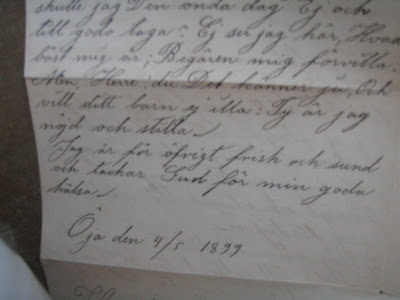 skulle jag Den onda dag Ej och
till godo taga? Ej ser jag här, Hvad
bäst mig är; Begären mig förvilla:
Men, Herre! du Det känner ju, Och
vill ditt barn ej illa: Ty är jag
nöjd och stilla.
Jag är för öfrigt frisk och sund
och tackar Gud för min goda
hälsa.
Öja den 4/5 1899